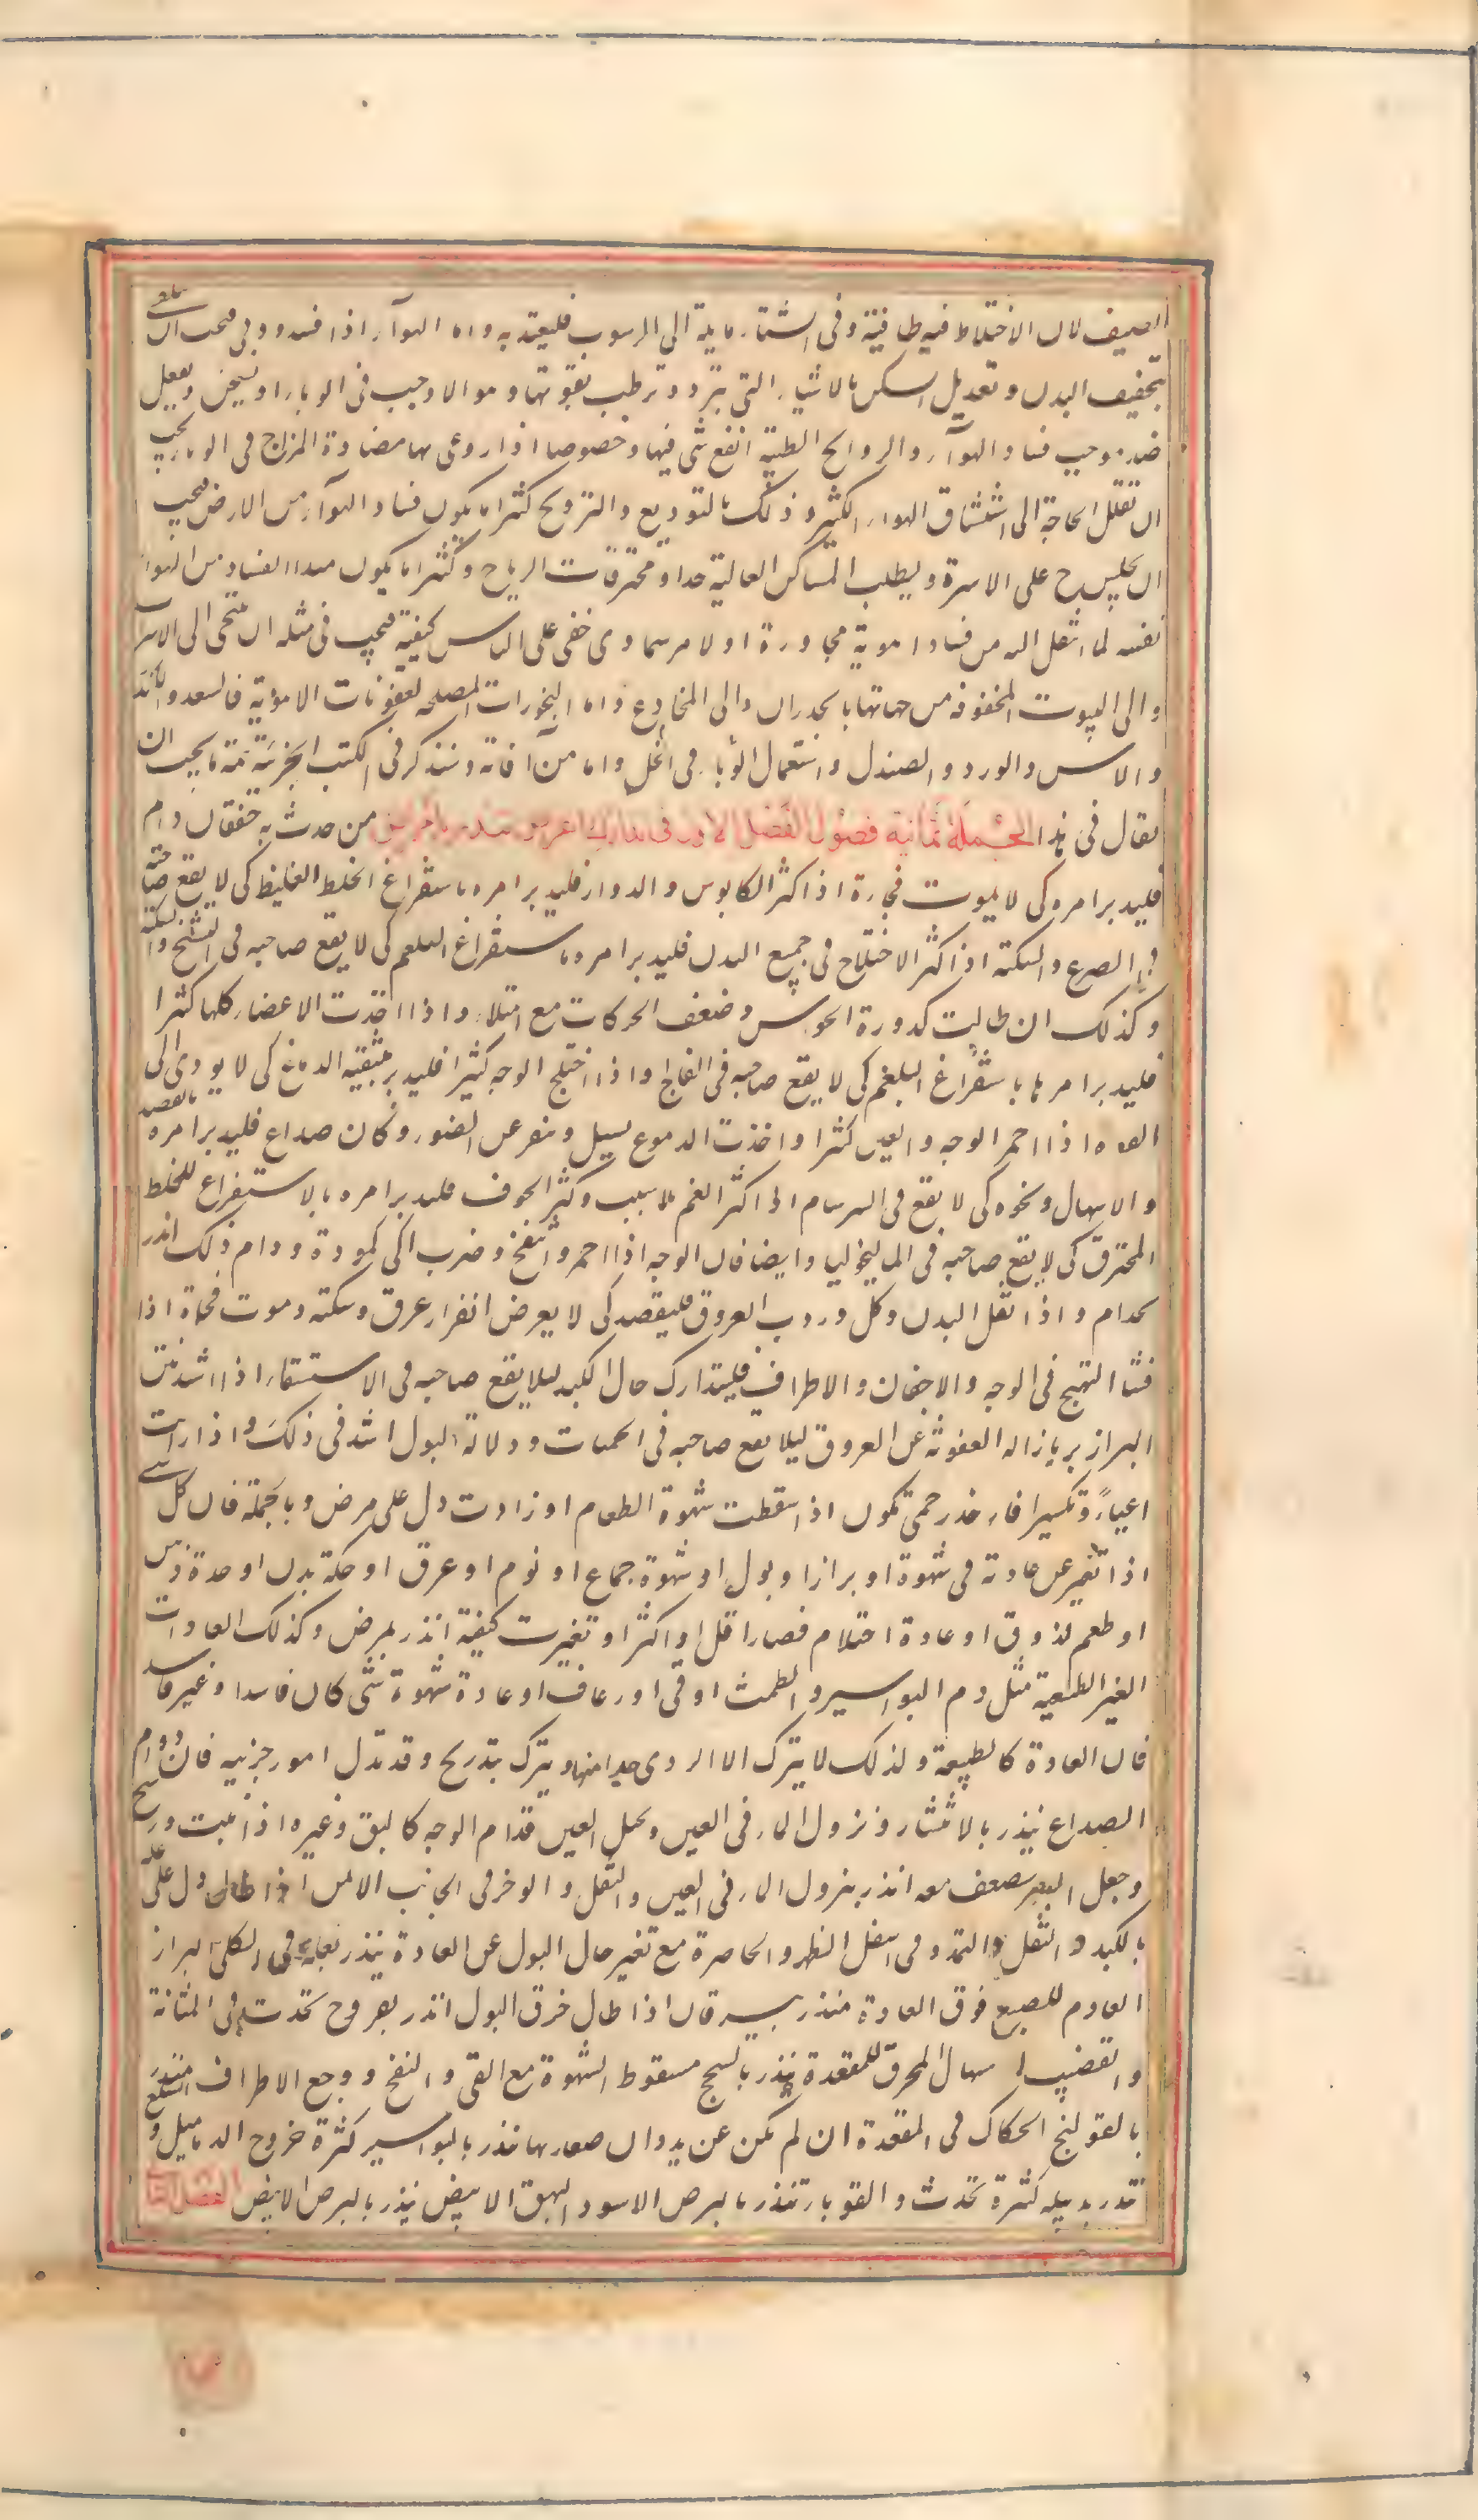 الصيف لان الاختلاط فيه طافية وفى الشتاء مايلة الى الرسوب فليعتد به واما الهوآء اذا فسد ووبى فيجب ان
بتجفيف البدن وتعديل المسكن بالاشياء التى تبرد وترطب بقوتها وهو الاوجب فى الوباء او يسخن ويفعل
ضد موجب فساد الهوآء والروايح الطيبة انفع شى فيها وخصوصا اذا روعى بها مضادة المزاج فى الوباء يجب
ان تقلل الحاجة الى استنشاق الهواء الكثير وذلك بالتوديع والترويح كثيرا ما يكون فساد الهوآء من الارض فيجب
ان يجلس ح على الاسرة ويطلب المساكن العالية جدا ومخترقات الرياح وكثيرا ما يكون مبدا الفساد من الهواء
نفسه لما انتقل اليه من فساد اهوية مجاورة او لامر سماوى خفى على الناس كيفيته فيجب فى مثله ان يتنحى الى الاسراب
والى البيوت المحفوفة من جهاتها بالجدران والى المخادع واما البخورات المصلحة لعفونات الاهوية فالسعد والكندر
والاس والورد والصندل واستعمال الوباء فى الخل واما من آفاته وسنذكر فى الكتب الجزئية تتمة ما يجب ان
يقال فى هذا الجملة ثمانية فصول الفصل الاول فى تدارك اعراض تنذر بامراض من حدث به خفقان دام
فليدبر امره كى لا يموت فجاءة اذا كثر الكابوس والدوار فليدبر امره باستفراغ الخلط الغليظ كى لا يقع صاحبه
فى الصرع والسكتة اذا كثر الاختلاج فى جميع البدن فليدبر امره باستفراغ البلغم كى لا يقع صاحبه فى التشنج والسكتة
وكذلك ان طالت كدورة الحواس وضعف الحركات مع امتلاء واذا خدرت الاعضاء كلها كثيرا
فليدبر امرها باستفراغ البلغم كى لا يقع صاحبه فى الفالج واذا اختلج الوجه كثيرا فليدبر بتنقية الدماغ كى لا يودى الى
اللقوه اذا احمر الوجه والعين كثيرا واخذت الدموع يسيل وينفر عن الضوء وكان صداع فليدبر امره بالفصد
والاسهال ونحوه كى لا يقع فى السرسام اذا كثر الغم بلا سبب وكثر الخوف فليدبر امره بالاستفراغ للخلط
المحترق كى لا يقع صاحبه فى الماليخوليا وايضا فان الوجه اذا احمر وانتفخ وضرب الى كمودة ودام ذلك انذر
بجذام واذا ثقل البدن وكل ودرت العروق فليفصد كى لا يعرض انفجار عرق وسكتة وموت فجاة اذا
فشا التهيج فى الوجه والاجفان والاطراف فليتدارك حال الكبد لئلا يقع صاحبه فى الاستسقاء اذا اشد نتن
البراز بر بازاله العفونة عن العروق ليلا يقع صاحبه فى الحميات ودلالة البول اشد فى ذلك واذا رايت
اعياءً وتكسيرا فاحذر حمى تكون اذا سقطت شهوة الطعام او زادت دل على مرض وبالجملة فان كل شى
اذا تغير عن عادته فى شهوة او براز او بول او شهوة جماع او نوم او عرق او حكة بدن او حدة ذهن
او طعم لذوق او عادة احتلام فصار اقل او اكثر او تغيرت كيفيته انذر بمرض وكذلك العادات
الغير الطبيعية مثل دم البواسير والطمث او قى او رعاف او عادة شهوة شى كان فاسدا او غير فاسد
فان العادة كالطبيعة ولذلك لا يترك الا الردى جدا منها ويترك بتدريج وقد تدل امور جزييه فان دوام
الصداع ينذر بالانتشار ونزول الماء فى العين وتخيل العين قدام الوجه كالبق وغيره اذا ثبت ورسخ
وجعل البصر يضعف معه انذر بنزول الماء فى العين والثقل والوخز فى الجانب الايمن اذا طال دل على علة
بالكبد والثقل والتمدد فى اسفل الظهر والخاصرة مع تغير حال البول عن العادة ينذر بعلة فى الكلى البراز
العادم للصبغ فوق العادة منذر بيرقان اذا طال حرق البول انذر بقروح تحدث فى المثانة
والقضيب اسهال المحرق للمقعدة ينذر بالسحج سقوط الشهوة مع القى والنفخ ووجع الاطراف منذر
بالقولنج الحكاك فى المقعدة ان لم يكن عن ديدان صغار بها منذر بالبواسير كثرة خروج الدماميل والسلع
تنذر بدبيله كثيرة تحدث والقوباء تنذر بالبرص الاسود البهق الابيض ينذر بالبرص الابيض الفصل الثانى